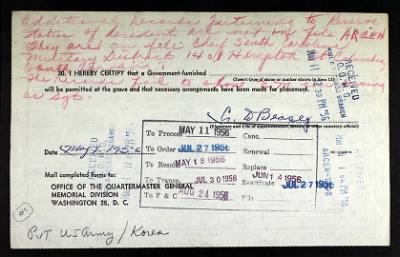 Additional Records pertaining to Reserve
Status of decedent are not on file ARCEN
They are on file: Chief South Carolina
Military District 1401 Hampton
as Sgt.
RECEIVED
MAY 11 2 39 PM '56
20. I HEREBY CERTIFY that a Government-furnished
(Insert type of stone or marker shown in item 12)
will be permitted at the grave and that necessary arrangements have been made for placement.
(Signature and title of superintendent, sexton or other cemetery official)
Date May 8, 1956
Mail completed forms to:
OFFICE OF THE QUARTERMASTER GENERAL
MEMORIAL DIVISION
WASHINGTON 25, D. C.
To Process MAY 11 1956 Canc.
To Order JUL 27 1956 Renewal
To Reason MAY 18 1956 Replace JUN 14 1956
To Transp. JUL 30 1956 Reactivate JUL 27 1956
To F & C AUG 24 1956 File
RECEIVED
Pvt US Army / Korea